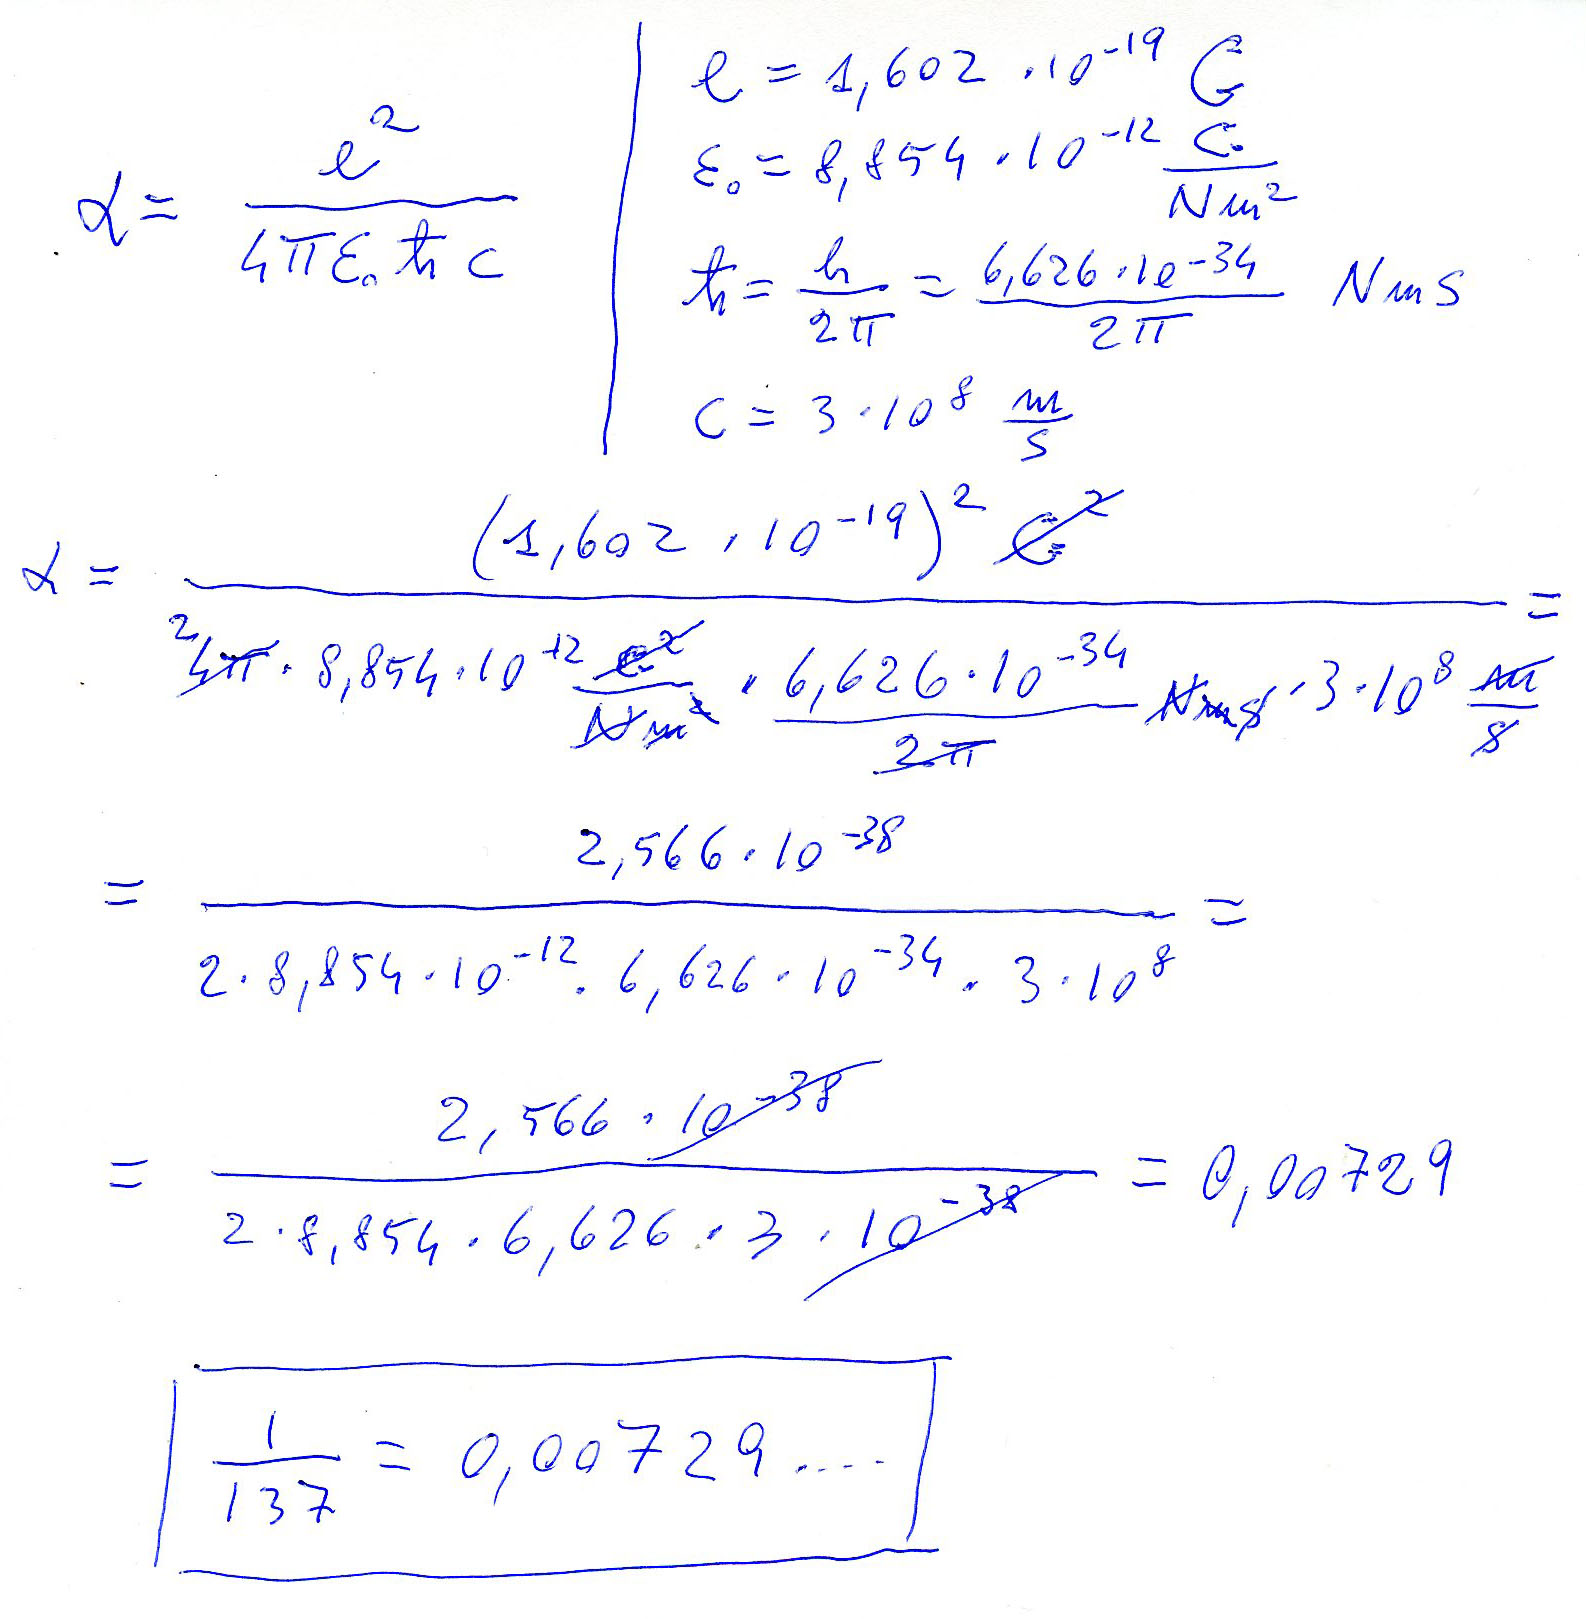 α = e² / (4πε₀ ħ c)
e = 1,602 · 10⁻¹⁹ C
ε₀ = 8,854 · 10⁻¹² C / (N m²)
ħ = h / 2π = 6,626 · 10⁻³⁴ / 2π N m s
c = 3 · 10⁸ m / s
α = (1,602 · 10⁻¹⁹)² C² / (2 4π · 8,854 · 10⁻¹² C² / (N m²) · 6,626 · 10⁻³⁴ / 2π N m s · 3 · 10⁸ m / s) =
= 2,566 · 10⁻³⁸ / (2 · 8,854 · 10⁻¹² · 6,626 · 10⁻³⁴ · 3 · 10⁸) =
= 2,566 · 10⁻³⁸ / (2 · 8,854 · 6,626 · 3 · 10⁻³⁸) = 0,00729
1 / 137 = 0,00729 ....